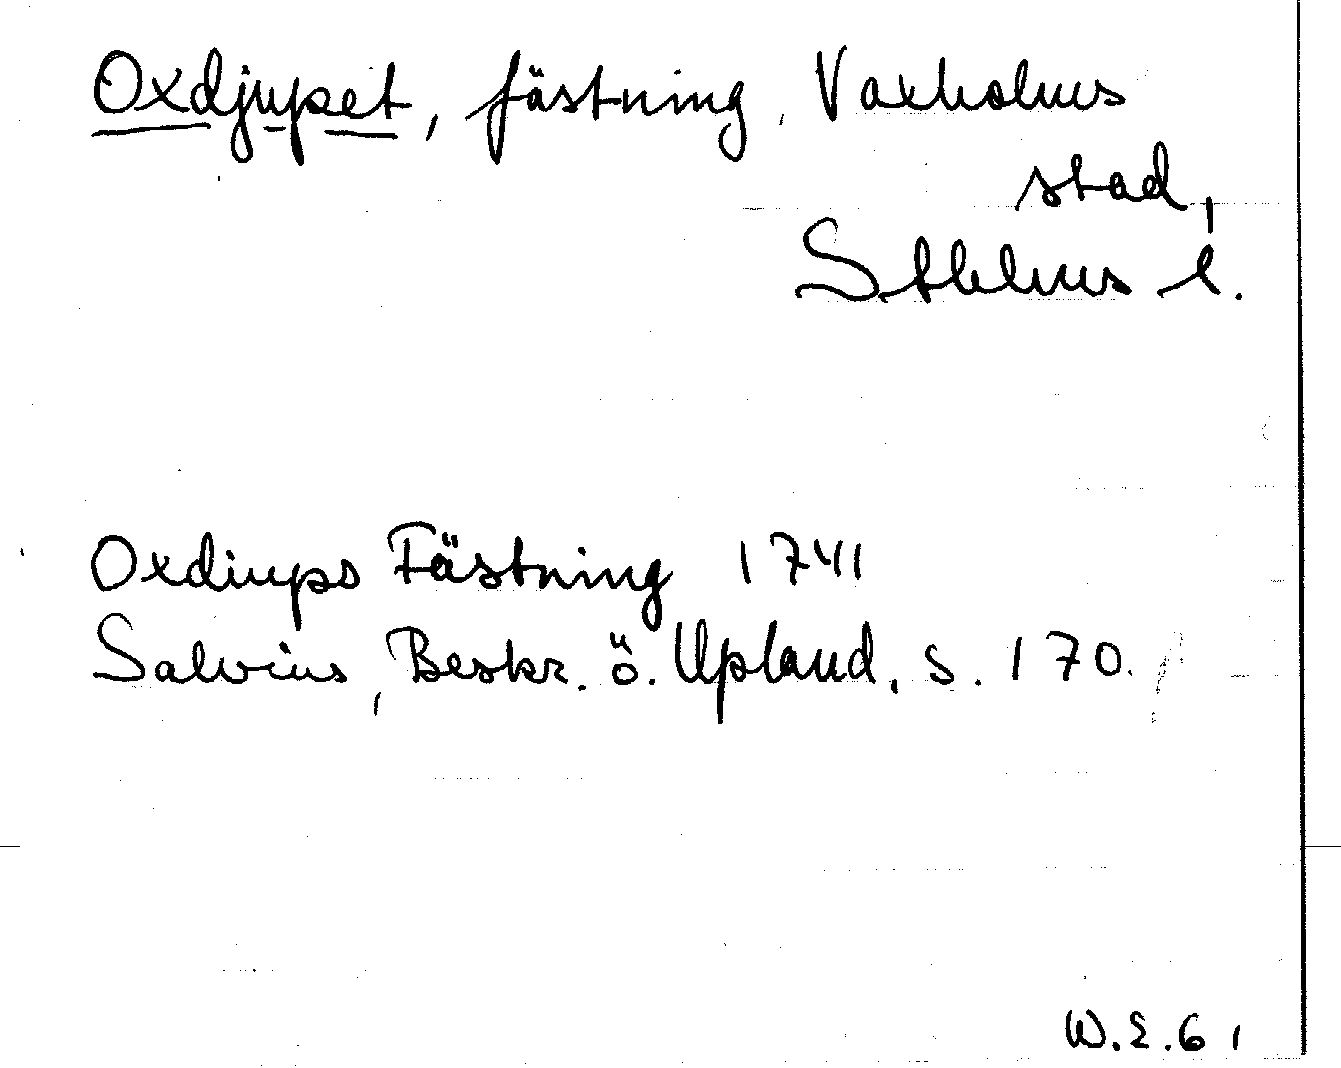 Oxdjupet, fästning, Vaxholms
stad,
Sthlms l.
Oxdiups Fästning 1741
Salvius, Beskr. ö. Upland, s. 170.
W.E.61